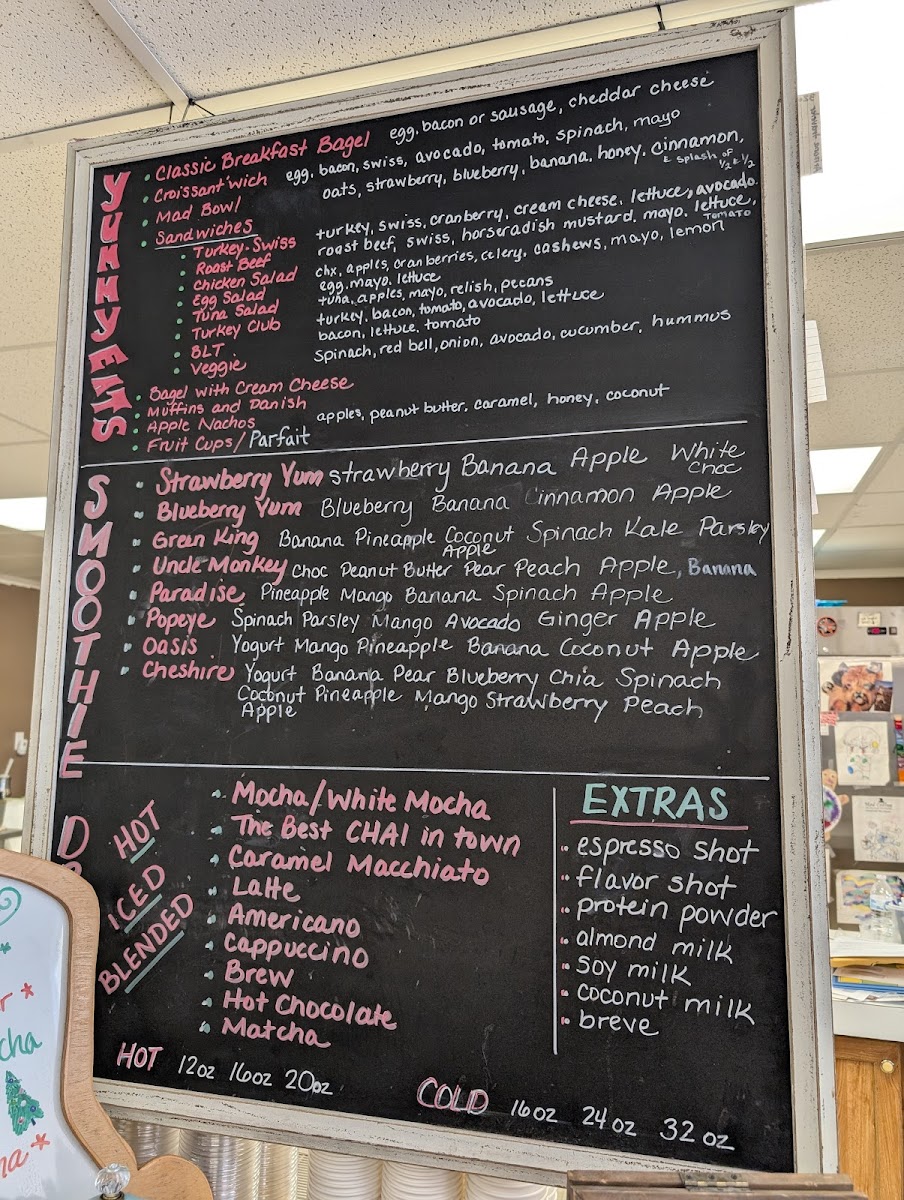 YUMMYMMS
Classic Breakfast Bagel egg, bacon or sausage, cheddar cheese
Croissant'wich egg, bacon, swiss, avocado, tomato, spinach, mayo
Mad Bowl oats, strawberry, blueberry, banana, honey, cinnamon, & splash of 1/2 & 1/2
Sandwiches
Turkey-Swiss turkey, swiss, cranberry, cream cheese, lettuce, avocado
Roast Beef roast beef, swiss, horseradish mustard, mayo, lettuce, tomato
Chicken Salad chx, apples, cranberries, celery, cashews, mayo, lemon
Egg Salad egg, mayo, lettuce
Tuna Salad tuna, apples, mayo, relish, pecans
Turkey Club turkey, bacon, tomato, avocado, lettuce
BLT bacon, lettuce, tomato
Veggie Spinach, red bell, onion, avocado, cucumber, hummus
Bagel with Cream Cheese
Muffins and Danish
Apple Nachos apples, peanut butter, caramel, honey, coconut
Fruit Cups/Parfait
SMOOTHIE
Strawberry Yum strawberry Banana Apple White Choc
Blueberry Yum Blueberry Banana Cinnamon Apple
Green King Banana Pineapple Coconut Spinach Kale Parsley
Apple
Uncle Monkey Choc Peanut Butter Pear Peach Apple, Banana
Paradise Pineapple Mango Banana Spinach Apple
Popeye Spinach Parsley Mango Avocado Ginger Apple
Oasis Yogurt Mango Pineapple Banana Coconut Apple
Cheshire Yogurt Banana Pear Blueberry Chia Spinach
Coconut Pineapple Mango Strawberry Peach
Apple
HOT
ICED
BLENDED
Mocha/White Mocha
The Best CHAI in town
Caramel Macchiato
Latte
Americano
Cappuccino
Brew
Hot Chocolate
Matcha
EXTRAS
espresso shot
flavor shot
protein powder
almond milk
soy milk
coconut milk
breve
HOT 12oz 16oz 20oz
COLD 16oz 24oz 32oz